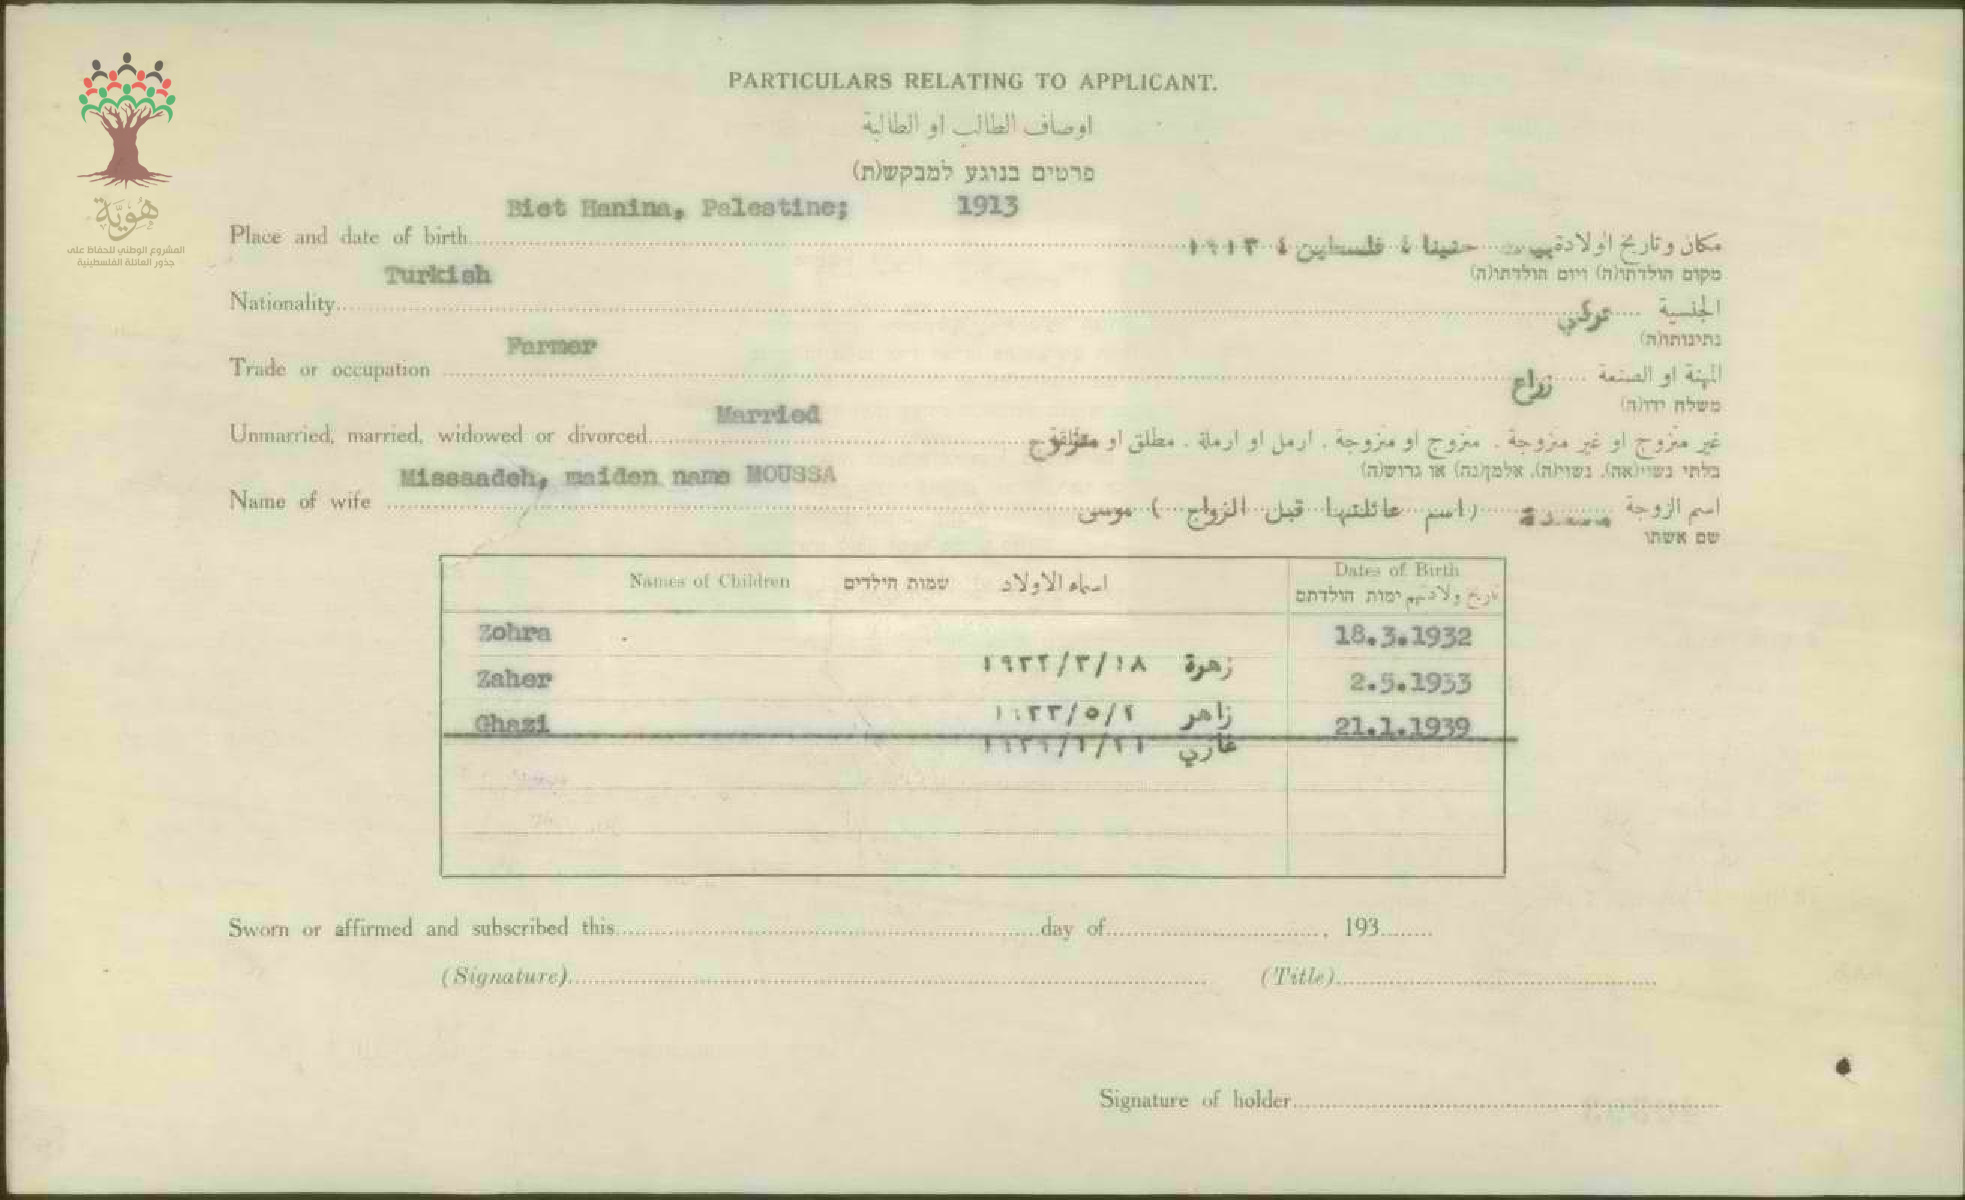 هُويَّة
المشروع الوطني للحفاظ على
جذور العائلة الفلسطينية
PARTICULARS RELATING TO APPLICANT.
اوصاف الطالب او الطالبة
פרטים בנוגע למבקש(ת)
Biet Hanina, Palestine; 1913
Place and date of birth مكان وتاريخ اولادة حنينا ٤ فلسطين ٤ ١٩١٣
מקום הולדתו(ה) ויום הולדתו(ה)
Turkish
Nationality الجنسية تركي
נתינותו(ה)
Farmer
Trade or occupation المهنة او الصنعة زراع
משלח ידו(ה)
Married
Unmarried, married, widowed or divorced غير متزوج او غير متزوجة . متزوج او متزوجة . ارمل او ارملة . مطلق او
בלתי נשוי(אה), נשוי(ה), אלמן(נה) או גרוש(ה)
Missaadeh, maiden name MOUSSA
Name of wife اسم الزوجة مسعدة (اسم عائلتها قبل الزواج) موسى
שם אשתו
Names of Children שמות הילדים اسماء الاولاد
Dates of Birth
تاريخ ولادتهم ימות הולדתם
Zohra 18.3.1932
زهرة ١٩٣٢/٣/١٨
Zaher 2.5.1933
زاهر ١٩٣٣/٥/٢
Ghazi 21.1.1939
غازي ١٩٣٩/١/٢١
Sworn or affirmed and subscribed this day of , 193
(Signature) (Title)
Signature of holder